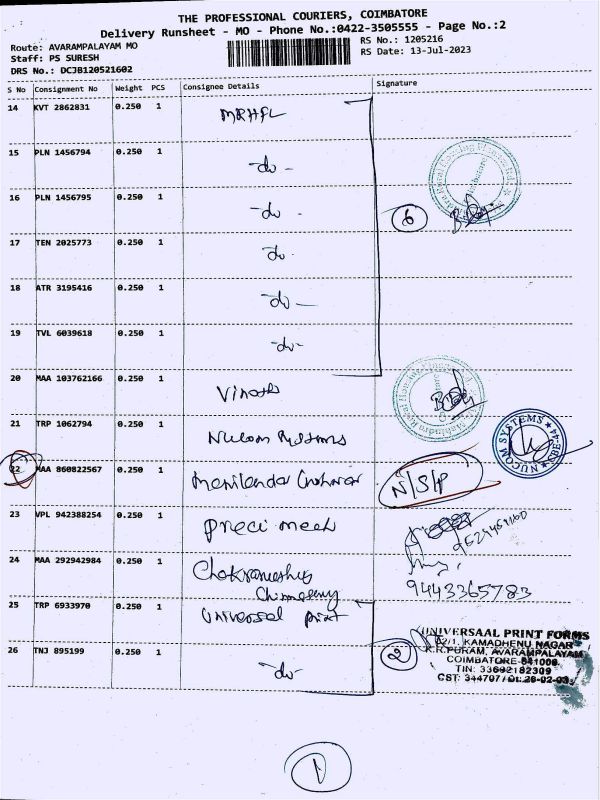 THE PROFESSIONAL COURIERS, COIMBATORE
Delivery Runsheet - MO - Phone No.:0422-3505555 - Page No.:2
Route: AVARAMPALAYAM MO
RS No.: 1205216
Staff: PS SURESH
RS Date: 13-Jul-2023
DRS No.: DCJB120521602
S No Consignment No Weight PCS Consignee Details Signature
14 KVT 2862831 0.250 1 MRHFL
15 PLN 1456794 0.250 1 -do-
16 PLN 1456795 0.250 1 -do-
6
17 TEN 2025773 0.250 1 do
18 ATR 3195416 0.250 1 -do-
19 TVL 6039618 0.250 1 -do-
20 MAA 103762166 0.250 1
21 TRP 1062794 0.250 1 Nucom Systems
NUCOM SYSTEMS
22 MAA 860822567 0.250 1 N/S/P
23 VPL 942388254 0.250 1 Preci mech
24 MAA 292942984 0.250 1
9443365783
25 TRP 6933970 0.250 1 Universal print
26 TNJ 895199 0.250 1 -do-
2
UNIVERSAAL PRINT FORMS
KAMADHENU NAGAR
R.R.PURAM, AVARAMPALAYAM
COIMBATORE-641006.
TIN: 33602182309
CST: 344707/Dt.28-02-03
1